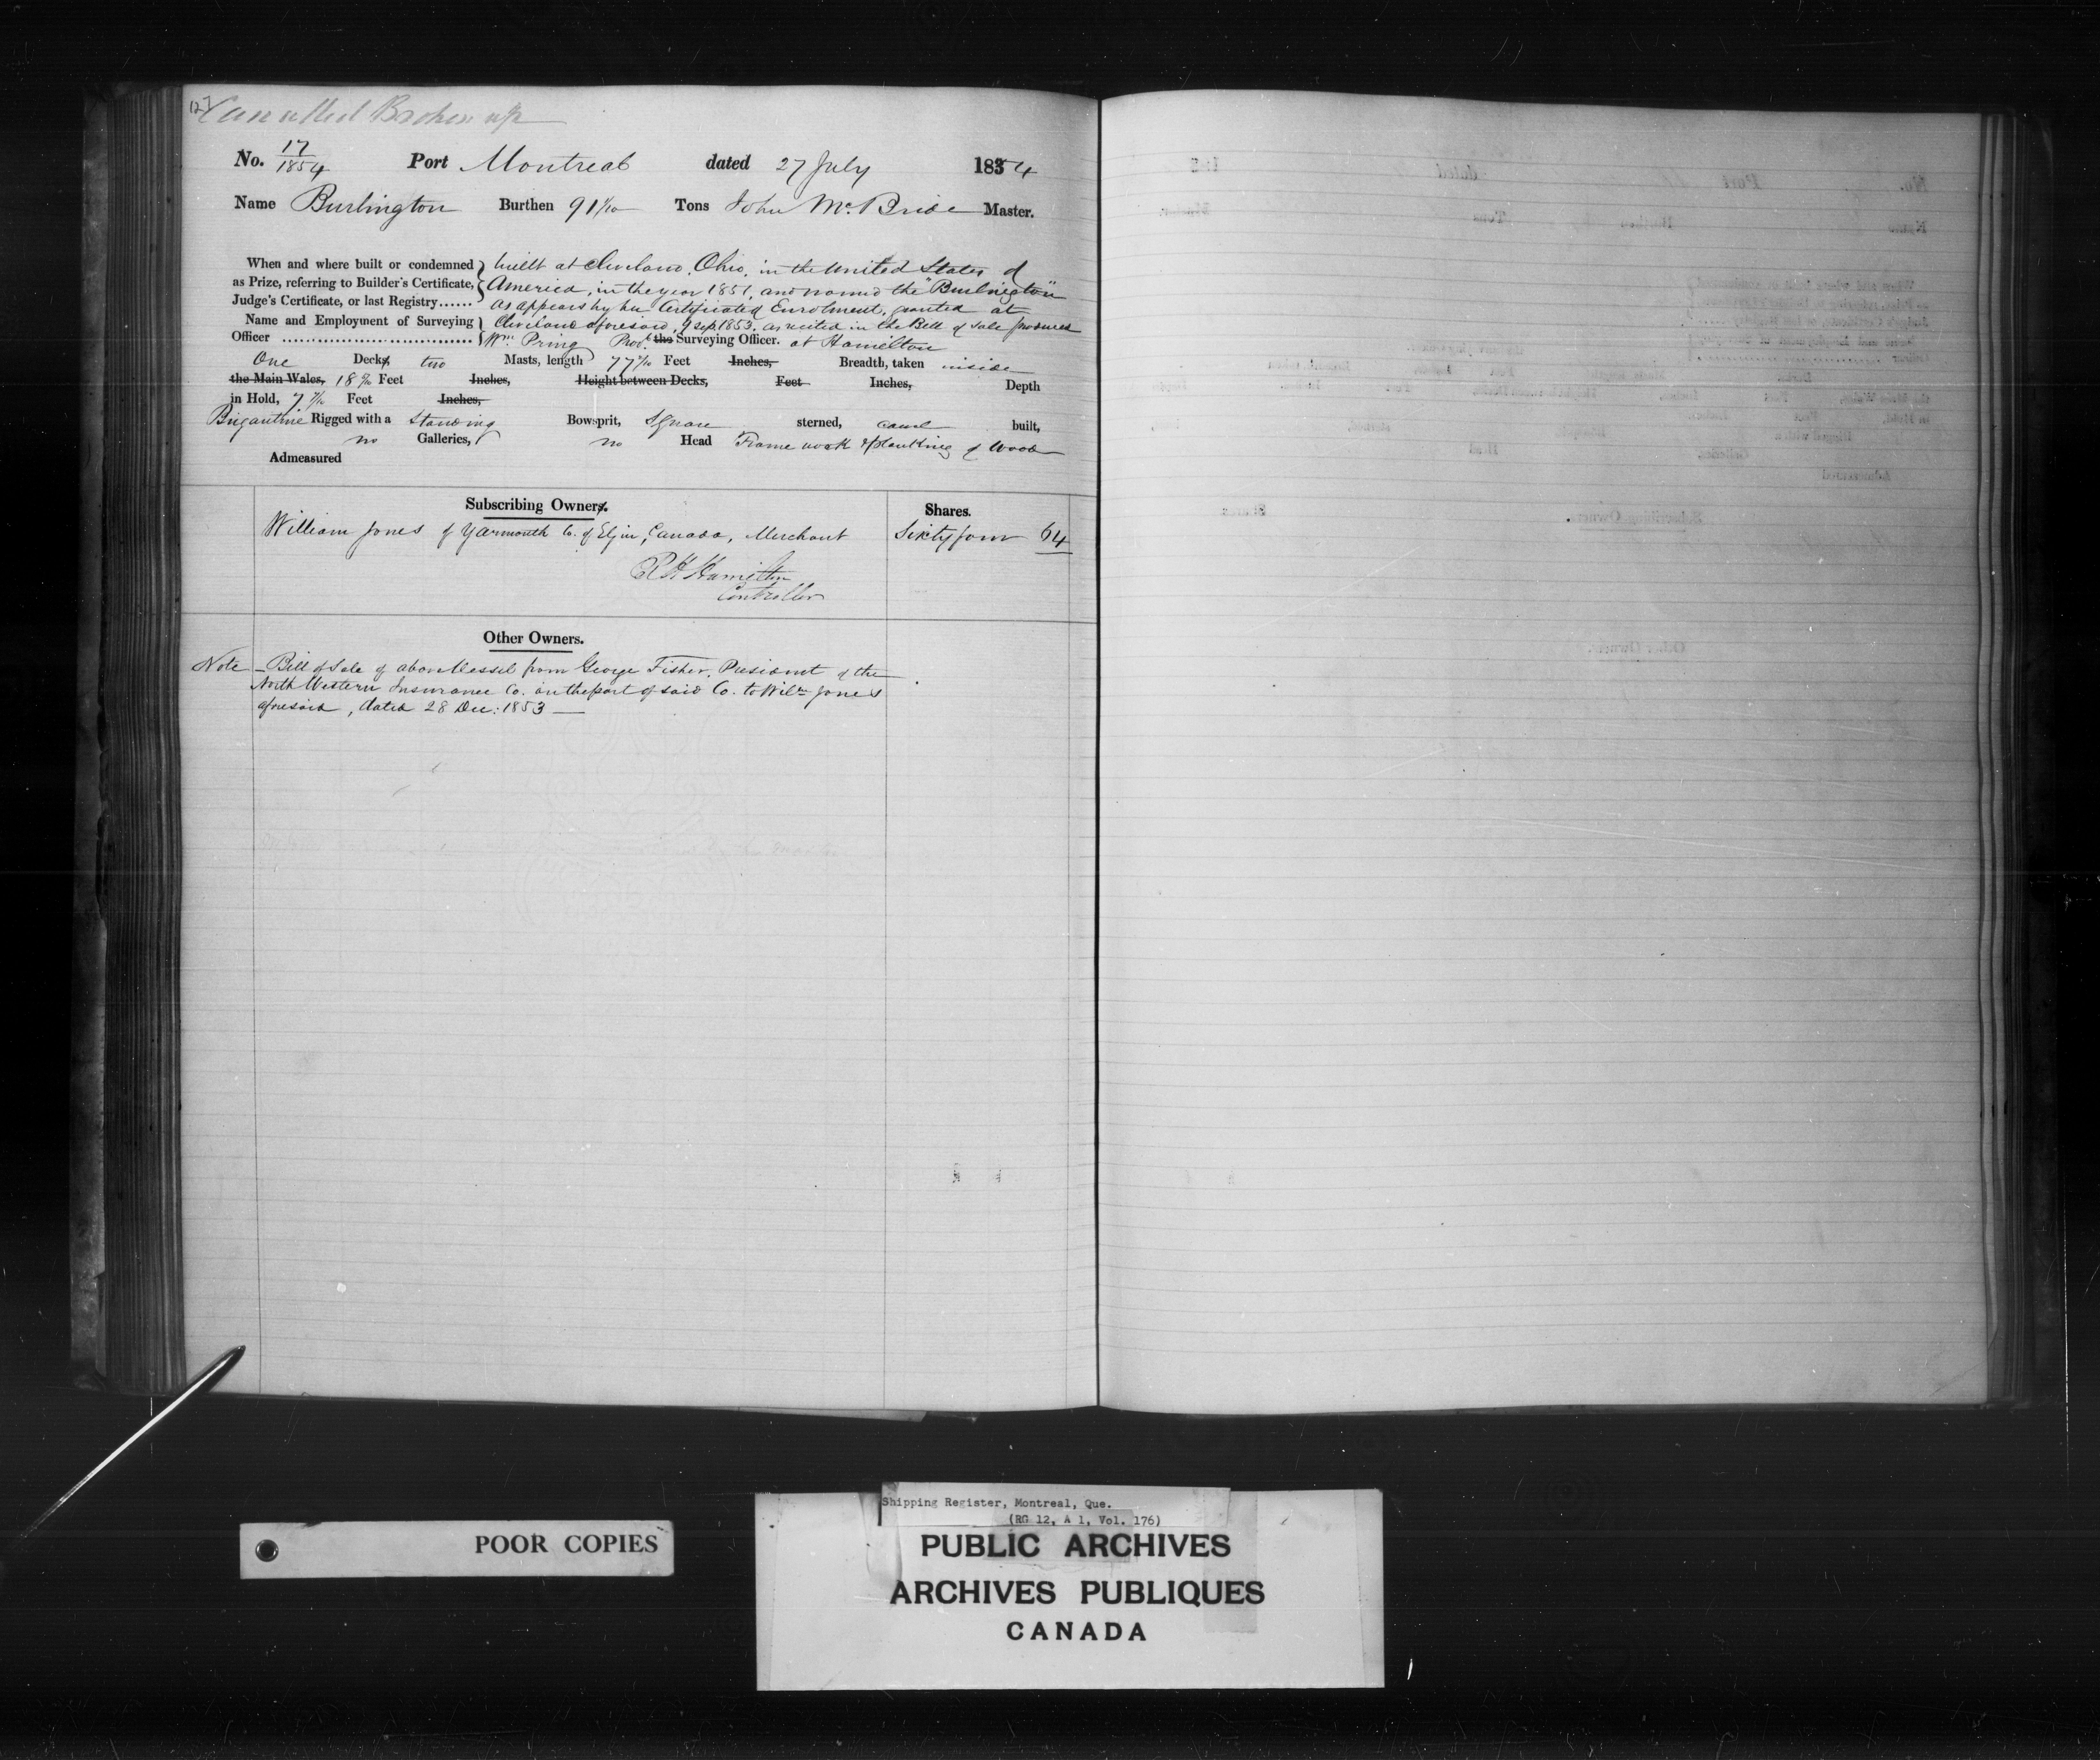 127
Cancelled Broken up
No. 17/1854 Port Montreal dated 27 July 1854
Name Burlington Burthen 91 /10 Tons John McBride Master.
When and where built or condemned as Prize, referring to Builder's Certificate, Judge's Certificate, or last Registry......
built at Cleveland, Ohio, in the United States of
America, in the year 1851, and named the "Burlington"
as appears by her Certificate of Enrolment, granted at
Cleveland aforesaid, 9 Sep 1853, as recited in the Bill of Sale produced
Name and Employment of Surveying Officer
Wm Pring the Surveying Officer. at Hamilton
One Decks two Masts, length 77 /10 Feet Inches, Breadth, taken inside
the Main Wales, 18 /10 Feet Inches, Height between Decks, Feet Inches, Depth
in Hold, 7 /10 Feet Inches,
Brigantine Rigged with a Standing Bowsprit, Square sterned, carvel built,
no Galleries, no Head Frame work & planking of Wood
Admeasured
Subscribing Owners. Shares.
William Jones of Yarmouth Co. of Elgin, Canada, Merchant Sixty four 64
Hamilton
Controller
Other Owners.
Note – Bill of Sale of above Vessel from George Fisher, President of the
North Western Insurance Co. on the part of said Co. to Wilm Jones
aforesaid, dated 28 Dec: 1853 —
POOR COPIES
Shipping Register, Montreal, Que.
(RG 12, A 1, Vol. 176)
PUBLIC ARCHIVES
ARCHIVES PUBLIQUES
CANADA